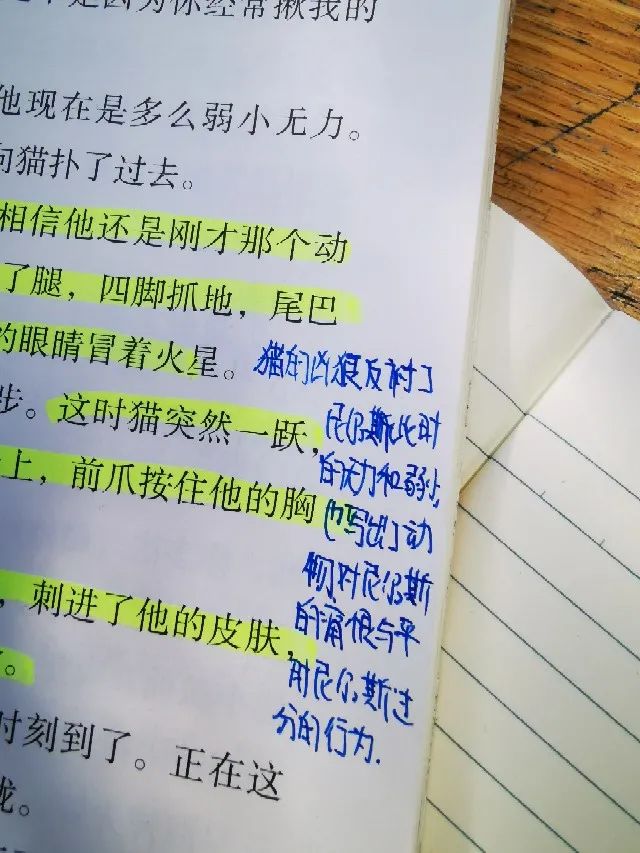 是因为你经常揪我的
他现在是多么弱小无力。
向猫扑了过去。
相信他还是刚才那个动
了腿，四脚抓地，尾巴
的眼睛冒着火星。
步。这时猫突然一跃，
上，前爪按住他的胸
，刺进了他的皮肤，
。
时刻到了。正在这
咙。
猫的凶狠反衬了
尼尔斯此时
的无力和弱小,
也写出了动
物对尼尔斯
的痛恨与平
时尼尔斯过
分的行为.